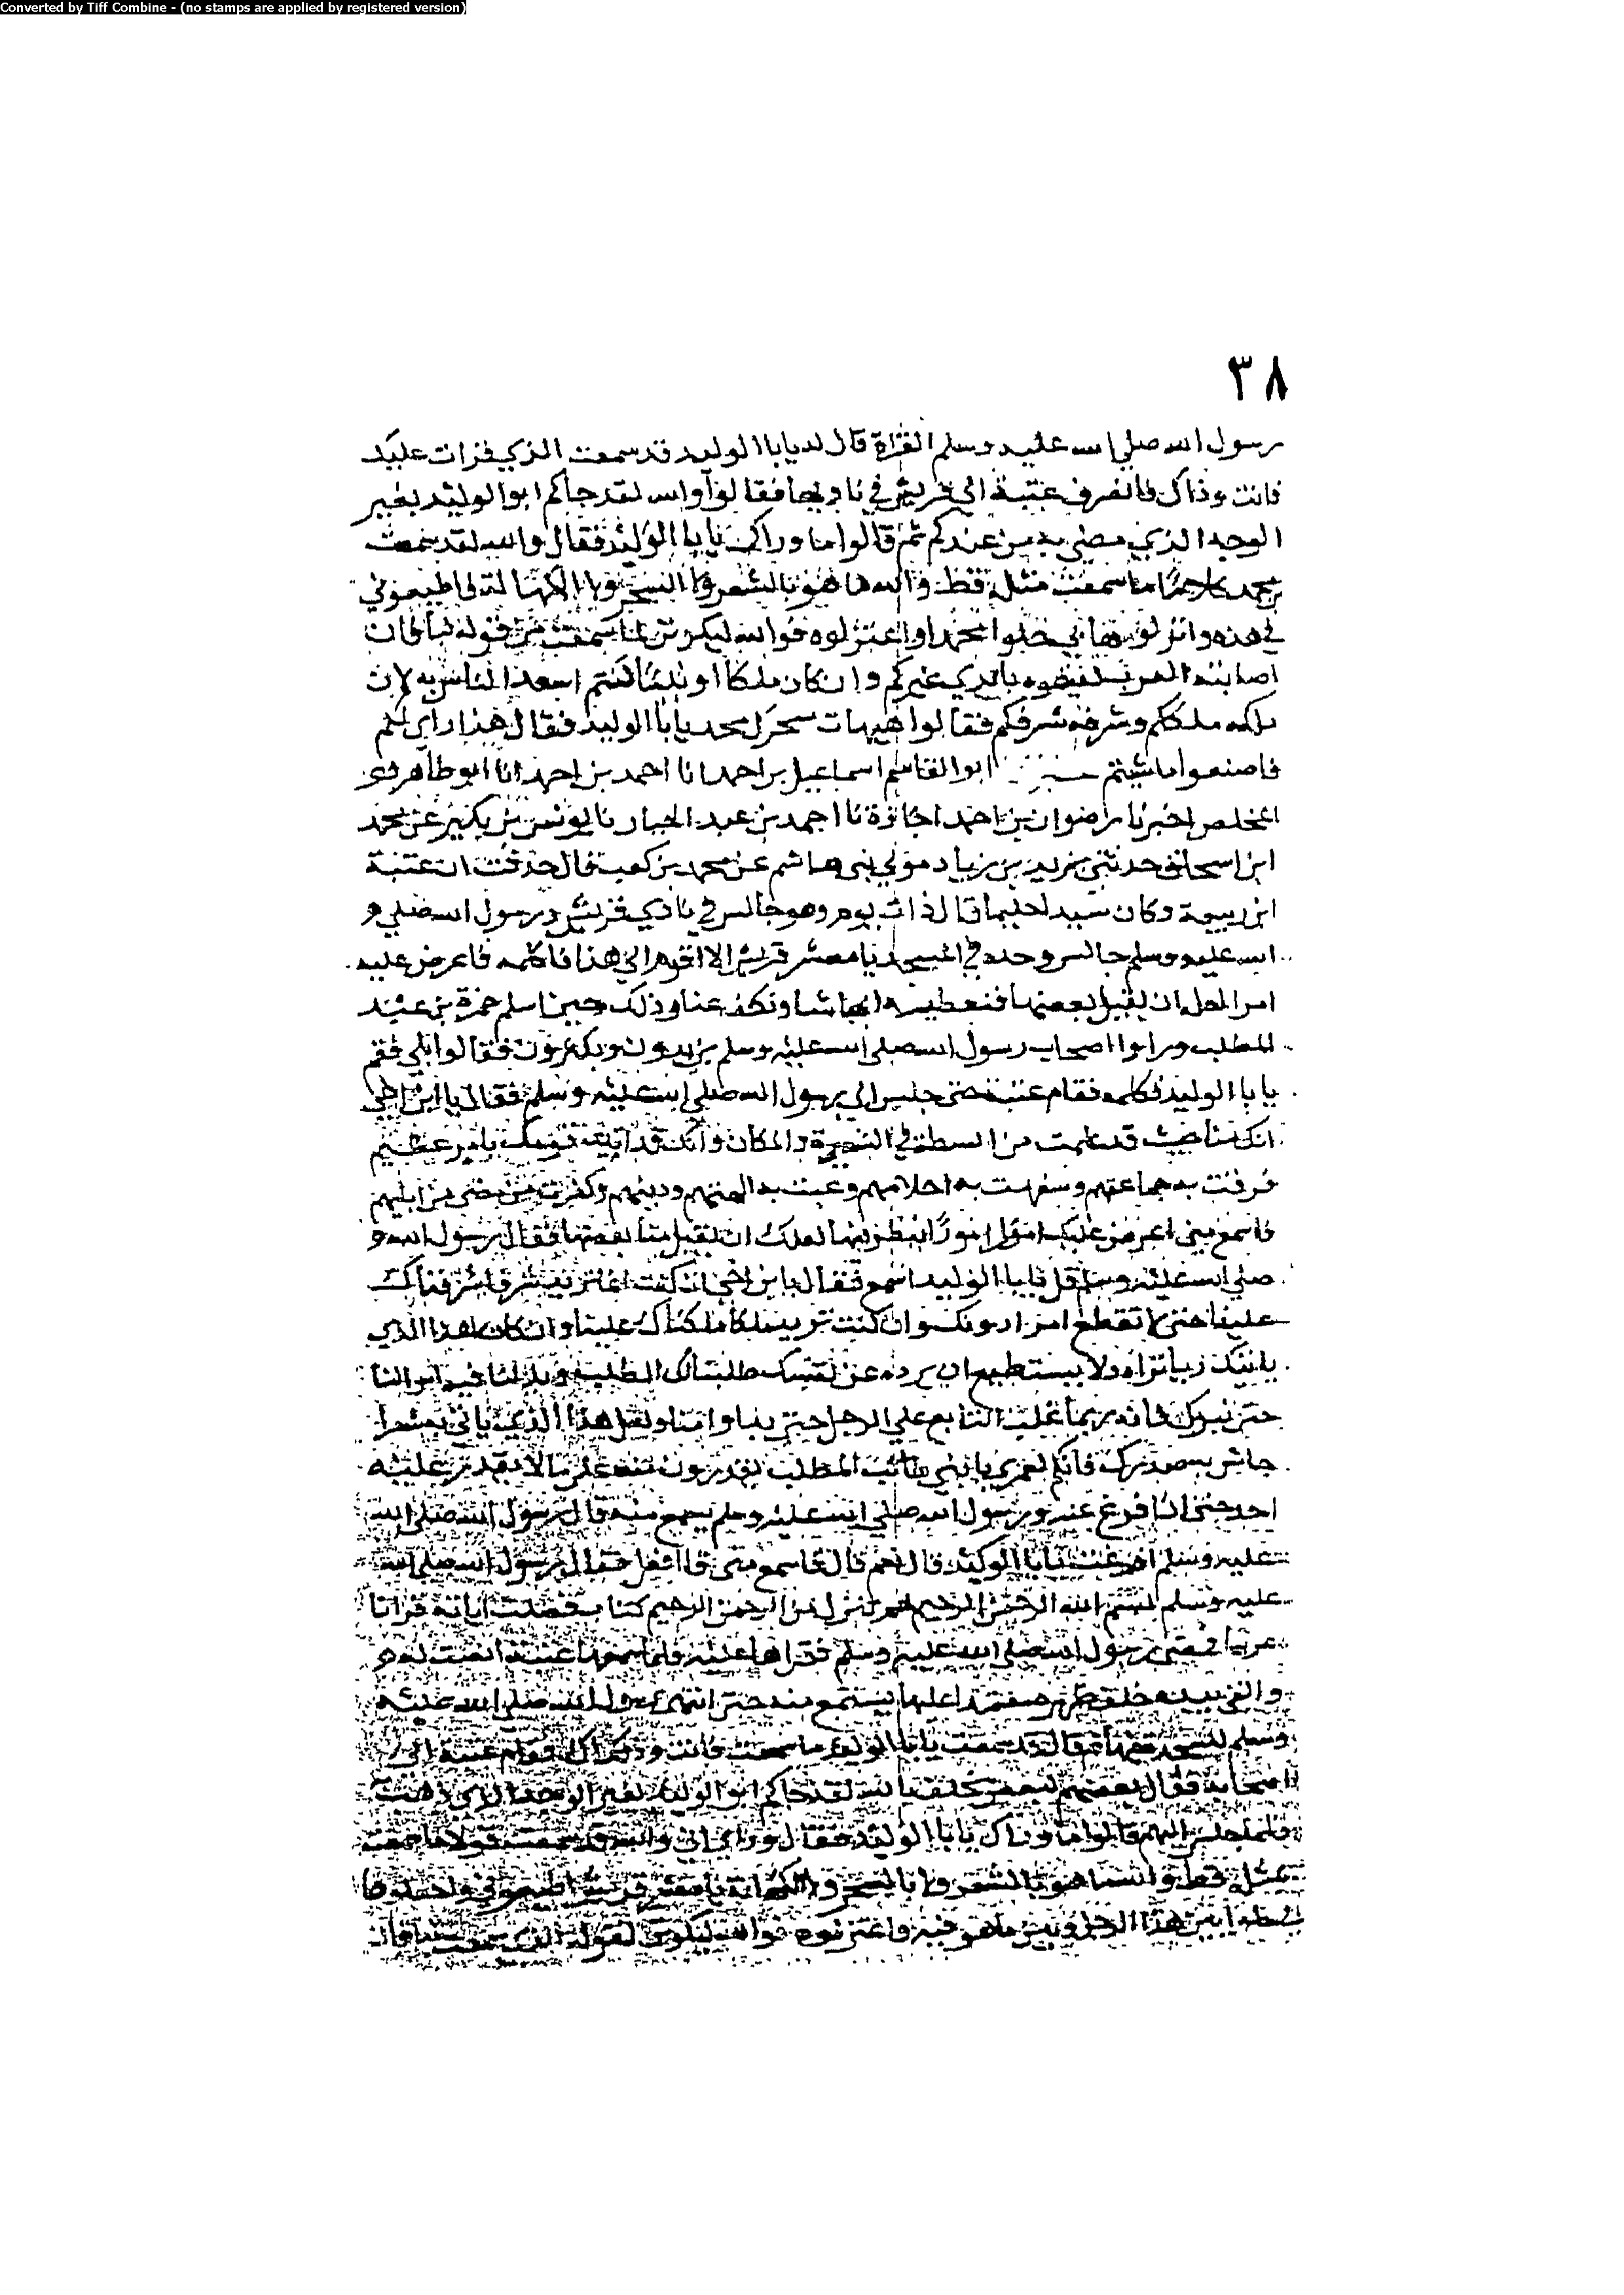 Converted by Tiff Combine - (no stamps are applied by registered version)
٣٨
رسول الله صلي الله عليه وسلم القراة قال له يابا الوليد قد سمعت الذي قرات عليك
فانت وذاك فانصرف عتبة الي قريش في ناديها فقالوا والله لقد جاكم ابو الوليد بغير
الوجه الذي مضي به من عندكم ثم قالوا ما وراك يابا الوليد فقال والله لقد سمعت
من محمد كلاما ما سمعت مثله قط والله ما هو بالشعر ولا السحر ولا الكهانة فاطيعوني
في هذه وانزلوها بي خلوا محمدا واعتزلوه فوالله ليكونن لما سمعت من قوله نبا فان
اصابته العرب كفيتموه بايدي غيركم وان كان ملكا او نبيا كنتم اسعد الناس به لان
ملكه ملككم وشرفه شرفكم فقالوا هيهات سحرك محمد يابا الوليد فقال هذا راي لكم
فاصنعوا ما شيتم ابو القاسم اسماعيل بن احمد انا احمد بن احمد انا ابو طاهر
المخلص اخبرنا رضوان بن احمد اجازة نا احمد بن عبد الجبار نا يونس بن بكير عن محمد
ابن اسحاق حدثني يزيد بن زياد مولي بني هاشم عن محمد بن كعب قال حدثت ان عتبة
ابن ربيعة وكان سيدا حليما قال ذات يوم وهو جالس في نادي قريش ورسول الله صلي
الله عليه وسلم جالس وحده في المسجد يا معشر قريش الا اقوم الي هذا فاكلمه فاعرض عليه
امرا لعله ان يقبل بعضها فنعطيه ايها شا ونكف عنا وذلك حين اسلم حمزة بن عبد
المطلب وراوا اصحاب رسول الله صلي الله عليه وسلم يزيدون ويكثرون فقالوا بلي فقم
يابا الوليد فكلمه فقام عتبة حتي جلس الي رسول الله صلي الله عليه وسلم فقال يا ابن اخي
انك منا حيث قد علمت من السطة في العشيرة والمكان وانك قد اتيت قومك بامر عظيم
فرقت به جماعتهم وسفهت به احلامهم وعبت به الهتهم ودينهم وكفرت من مضي من ابايهم
فاسمع مني اعرض عليك امورا تنظر فيها لعلك ان تقبل منا بعضها فقال رسول الله
صلي الله عليه وسلم قل يابا الوليد اسمع فقال يا بن اخي ان كنت تشرفا شرفناك
علينا حتي لا تقطع امرا دونك وان كنت تريد ملكا ملكناك علينا وان كان هذا الذي
ياتيك ريا تراه ولا يستطيع ان ترده عن نفسك طلبنا لك الطب وبذلنا فيه اموالنا
حتي نبرك فانه ربما غلب التابع علي الرجل حتي يداوا منه ولعل هذا الذي ياتي به شعرا
جاش به صدرك فانكم لعمري يا بني عبد المطلب تقدرون منه علي ما لا يقدر عليه
احد حتي اذا فرغ عنه ورسول الله صلي الله عليه وسلم يسمع منه قال رسول الله صلي الله
عليه وسلم افرغت يابا الوليد قال نعم قال فاسمع مني قال افعل فقال رسول الله صلي الله
عليه وسلم بسم الله الرحمن الرحيم حم تنزيل من الرحمن الرحيم كتاب فصلت اياته قرانا
عربيا فمضي رسول الله صلي الله عليه وسلم فقراها عليه فلما سمعها عتبة انصت له
والقي بيديه خلف ظهره معتمدا عليها يستمع منه حتي انتهي رسول الله صلي الله عليه
وسلم للسجدة فسجدها ثم قال قد سمعت يابا الوليد ما سمعت فانت وذاك فقام عتبة الي
اصحابه فقال بعضهم لبعض نحلف بالله لقد جاكم ابو الوليد بغير الوجه الذي ذهب به
فلما جلس اليهم قالوا ما وراك يابا الوليد فقال وراي اني والله قد سمعت قولا ما سمعت
بمثله قط والله ما هو بالشعر ولا بالسحر ولا الكهانة يا معشر قريش اطيعوني
خلوا بين هذا الرجل وبين ما هو فيه واعتزلوه فوالله ليكونن لقوله الذي سمعت نبا فان